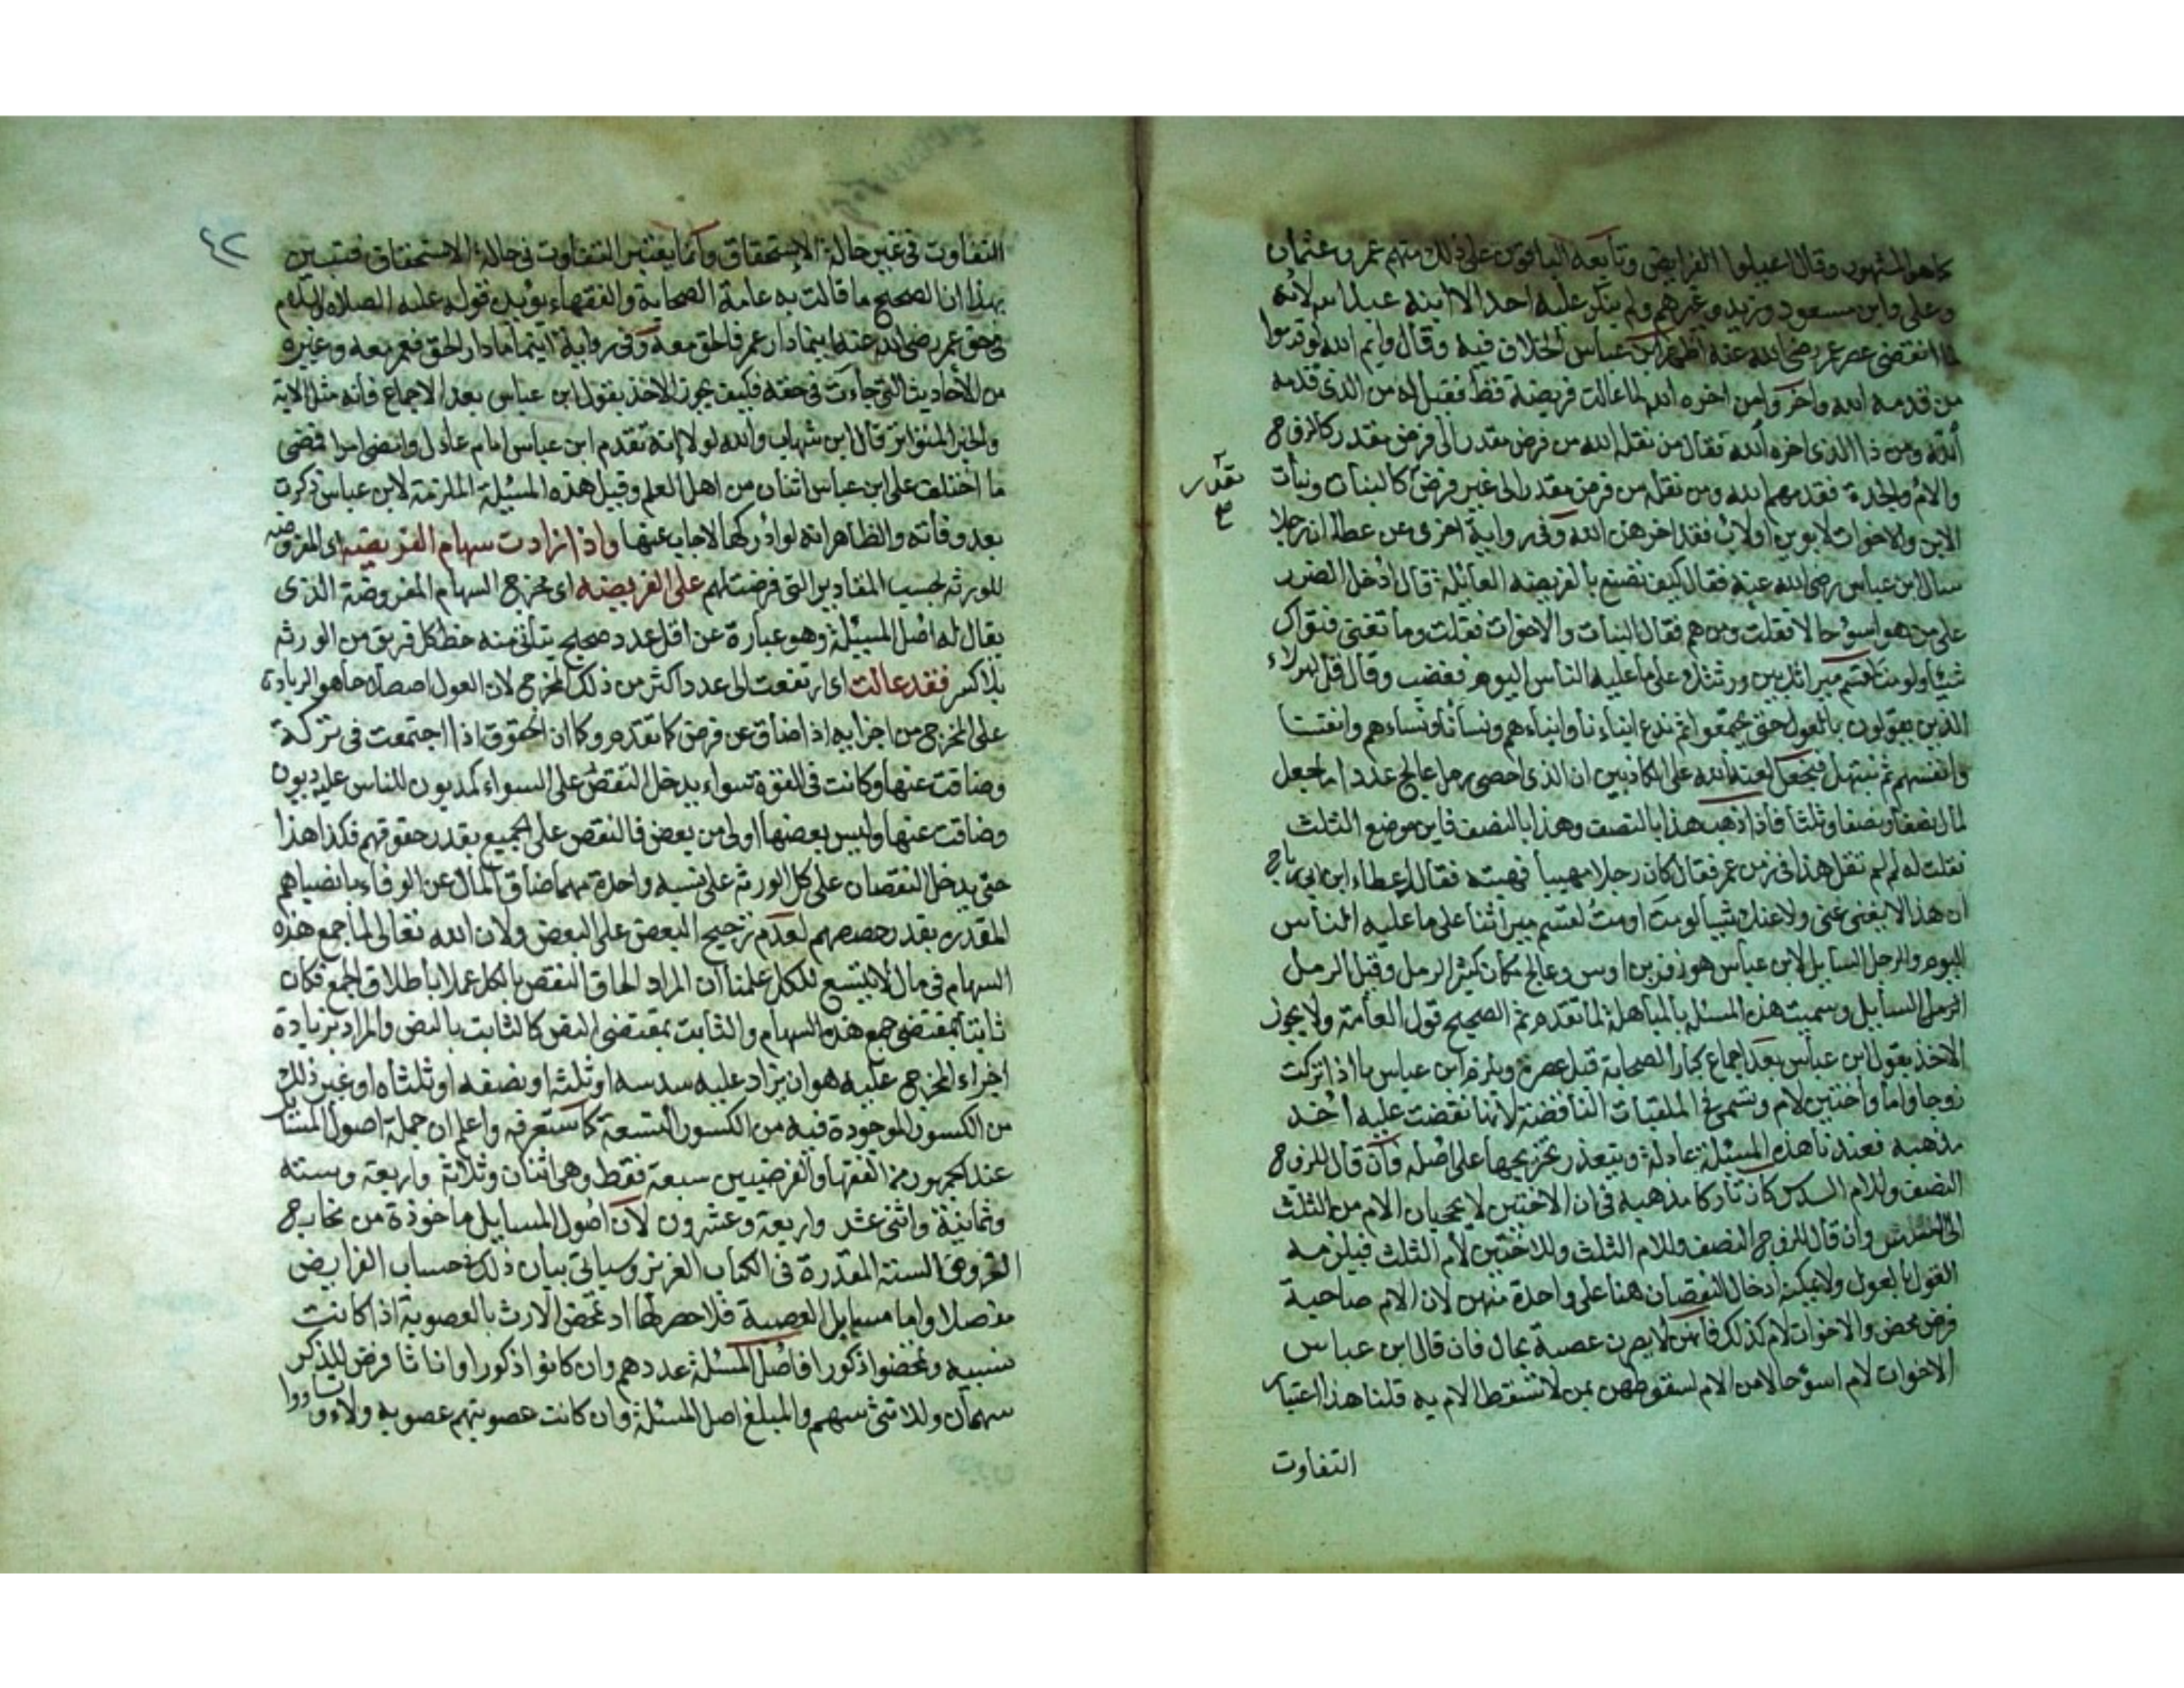 كما هو المشهور وقال اعيلوا الفرايض وتابعه الباقون على ذلك منهم عمر وعثمان
وعلى وابن مسعود وزيد وغيرهم ولم ينكر عليه احد الا ابنه عبد الله لانه
لما انقضى عصر عمر رضى الله عنه اظهر ابن عباس الخلاف فيه وقال وايم الله لو قدموا
من قدمه الله واخروا من اخره الله لما عالت فريضة قط فقيل له من الذى قدمه
الله ومن ذا الذى اخره الله فقال من نقله الله من فرض مقدر الى فرض مقدر كالزوج
والام والجدة فقدمهم الله ومن نقله من فرض مقدر الى غير فرض كالبنات وبنات
تقدر
الابن والاخوات لابوين اولاب فقد اخرهن الله وفى رواية اخرى عن عطا ان رجلا
سال ابن عباس رضى الله عنه فقال كيف نصنع بالفريضه العائلة قال ادخل الضرر
على من هو اسوء حالا فقلت ومن هم فقال البنات والاخوات فقلت وما تغنى فتواك
شيئا ولو مت لقسم ميراثك بين ورثتك على ما عليه الناس اليوم فغضب وقال قل لهولاء
الذين يقولون بالعول حتى يجمعوا ثم ندع ابناءنا وابناءهم ونسانا ونساءهم وانفسنا
وانفسهم ثم نبتهل فنجعل لعنة الله على الكاذبين ان الذى احصى رمل عالج عددا ما جعل
لمال نصفا ونصفا وثلثا فاذا ذهب هذا بالنصف وهذا بالنصف فاين موضع الثلث
فقلت له لم لم تقل هذا فى زمن عمر فقال كان رجلا مهيبا فهبته فقال له عطاء ابن ابى رباح
ان هذا لا يغنى عنى ولا عنك شيئا لو مت او مت لقسم ميراثنا على ما عليه الناس
اليوم والرجل السايل لابن عباس هو زفر بن اوس وعالج مكان كثير الرمل وقيل الرمل
الرمل السايل وسميت هذه المسئله بالمباهلة لما تقدم ثم الصحيح قول العامة ولا يجوز
الاخذ بقول ابن عباس بعد اجماع كبار الصحابة قبل عصره ويلزم ابن عباس ما اذا تركت
زوجا واما واختين لام وتسمى فى الملقبات الناقضة لانها نقضت عليه احد
مذهبه فعندنا هذه المسئلة عادلة ويتعذر تخريجها على اصله فان قال للزوج
النصف وللام السدس كان تاركا مذهبه فى ان الاختين لا يحجبان الام من الثلث
الى السدس وان قال للزوج النصف وللام الثلث وللاختين لام الثلث فيلزمه
القول بالعول ولا يمكنه ادخال النقصان هنا على واحدة منهن لان الام صاحبة
فرض محض والاخوات لام كذلك فانهن لا يصرن عصبة بحال فان قال ابن عباس
الاخوات لام اسوء حالا من الام لسقوطهن بمن لا تسقط الام به قلنا هذا اعتبار
التفاوت
٤٢
التفاوت فى غير حالة الاستحقاق وانما يعتبر التفاوت فى حالة الاستحقاق فتبين
بهذا ان الصحيح ما قالت به عامة الصحابة والفقهاء يؤيده قوله عليه الصلاه والسلام
فى حق عمر رضى الله عنه اينما دار عمر فالحق معه وفى رواية اينما مادار الحق فعمر معه وغيره
من الأحاديث التى جاءت فى حقه فكيف يجوز الاخذ بقول ابن عباس بعد الاجماع فأنه مثل الاية
والخبر المتواتر قال ابن شهاب والله لولا انه تقدم ابن عباس امام عادل وامضى امرا فمضى
ما اختلف على ابن عباس اثنان من اهل العلم وقيل هذه المسئلة الملزمة لابن عباس ذكرت
بعد وفاته والظاهر انه لو ادركها لاجاب عنها واذا زادت سهام الفريضه اى المفروضه
للورثه بحسب المقادير التى فرضت لهم على الفريضه اى مخرج السهام المفروضة الذى
يقال له اصل المسئلة وهو عبارة عن اقل عدد صحيح يتأتى منه حظ كل فريق من الورثه
بلا كسر فقد عالت اى ارتفعت الى عدد اكثر من ذلك المخرج لان العول اصطلاحا هو الزيادة
على المخرج من اجزايه اذا ضاق عن فرض كما تقدم وكما ان الحقوق اذا اجتمعت فى تركة
وضاقت عنها وكانت فى القوة سواء يدخل النقص على السواء كمديون للناس عليه ديون
وضاقت عنها وليس بعضها اولى من بعض فالنقص على الجميع بقدر حقوقهم فكذا هذا
حتى يدخل النقصان على كل الورثه على نسبه واحدة مهما ضاق المال عن الوفاء بانصبائهم
المقدره بقدر حصصهم لعدم ترجيح البعض على البعض ولان الله تعالى لما جمع هذه
السهام فى مال لا يتسع للكل علمنا ان المراد الحاق النقص بالكل عملا باطلاق الجمع فكان
ثابتا بمقتضى جمع هذه السهام والثابت بمقتضى النص كالثابت بالنص والمراد بزيادة
اجزاء المخرج عليه هو ان يزاد عليه سدسه او ثلثه او نصفه او ثلثاه او غير ذلك
من الكسور الموجودة فيه من الكسور التسعة كما ستعرفه واعلم ان جملة اصول المسايل
عند الجمهور من الفقها والفرضيين سبعة فقط وهى اثنان وثلاثة واربعة وسته
وثمانية واثنى عشر واربعة وعشرون لان اصول المسايل ماخوذة من مخارج
الفروض الستة المقدرة فى الكتاب العزيز وسياتى بيان ذلك فى حساب الفرايض
مفصلا واما مسايل العصبة فلا حصر لها اذ تمحض الارث بالعصوبة اذا كانت
نسبيه وتمحضوا ذكورا فاصل المسئلة عددهم وان كانوا ذكورا واناثا فرض للذكر
سهمان وللانثى سهم والمبلغ اصل المسئلة وان كانت عصوبتهم عصوبه ولاء وتساووا